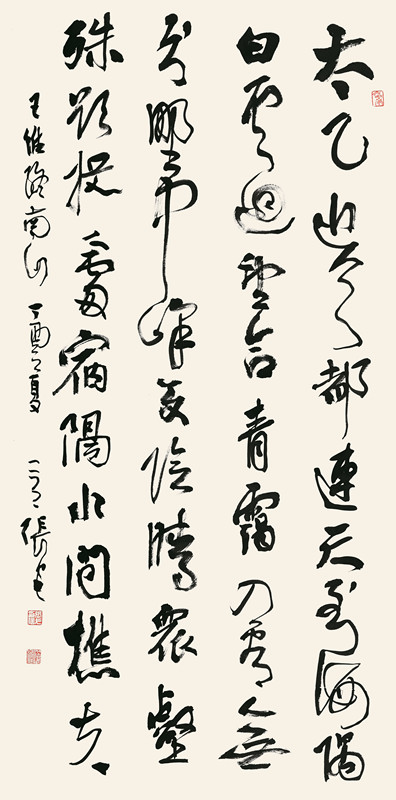 太乙近天都連天到海隅
白雲迴望合青靄入看無
分野中峰變陰晴眾壑
殊欲投人處宿隔水問樵夫
王維終南山 丁酉之夏 張